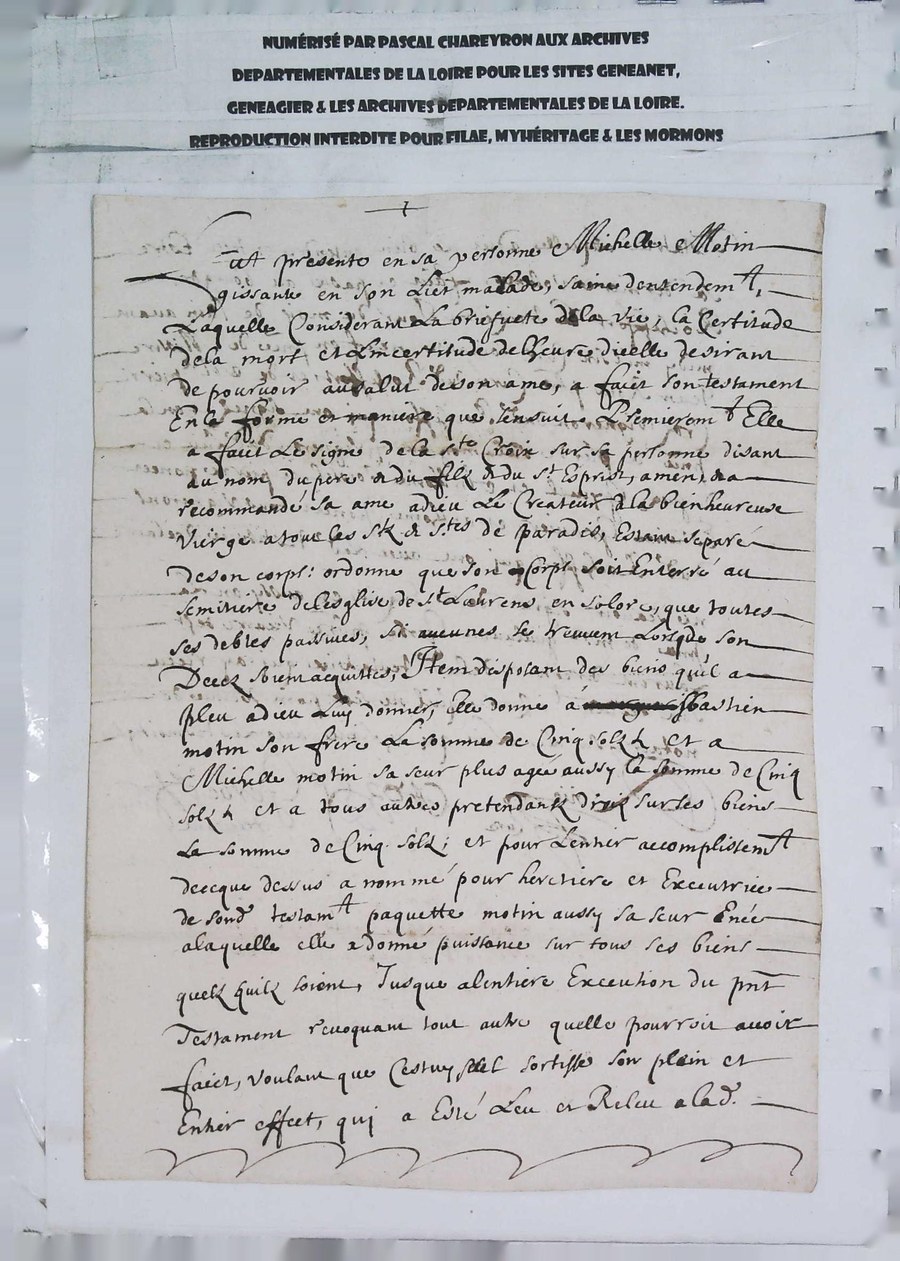 NUMÉRISÉ PAR PASCAL CHAREYRON AUX ARCHIVES
DEPARTEMENTALES DE LA LOIRE POUR LES SITES GENEANET,
GENEAGIER & LES ARCHIVES DEPARTEMENTALES DE LA LOIRE.
REPRODUCTION INTERDITE POUR FILAE, MYHÉRITAGE & LES MORMONS
†
fut presente en sa personne Michelle Motin
gissante en son Lict malade, saine dentendemt,
Laquelle Considerant La briefuete de la vie, la Certitude
de la mort et Lincertitude de lheure dicelle desirant
de pouruoir au salut de son ame, a faict son testament
En la forme et maniere que sensuit. Premieremt Elle
a faict Le signe de la ste Croix sur sa personne disant
au nom du pere & du filz & du st Esprist, amen, & a
recommandé sa ame a dieu Le Createur a la bienheureuse
vierge a tous les sts & stes de paradis, Estant separé
de son corps: ordonne que son Corps soit Enterré au
semitiere de lesglise de st Laurens en solore, que toutes
ses debtes passives, si aucunes se treuuent Lorsque son
Decez soient acquittés, Item disposant des biens qu'il a
pleu a dieu Luy donner, Elle donne à sbastien
motin son frere La somme de Cinq solz et a
Michelle motin sa seur plus ageé aussy la somme de Cinq
solz et a tous autres pretendantz droit sur ses biens
La somme de Cinq solz; et pour Lentier accomplissemt
de ce que dessus a nommé pour heretiere et Executrice
de sond testamt paquette motin aussy sa seur
a laquelle elle a donné puissance sur tous ses biens
quelz quilz soient, Jusque a lentiere Execution du pnt
Testament reuoquant tout autre quelle pourroit auoir
faict, voulant que Cestuy seul sortisse son plein et
Entier effect, qui a Esté Leu et Releu a lad.